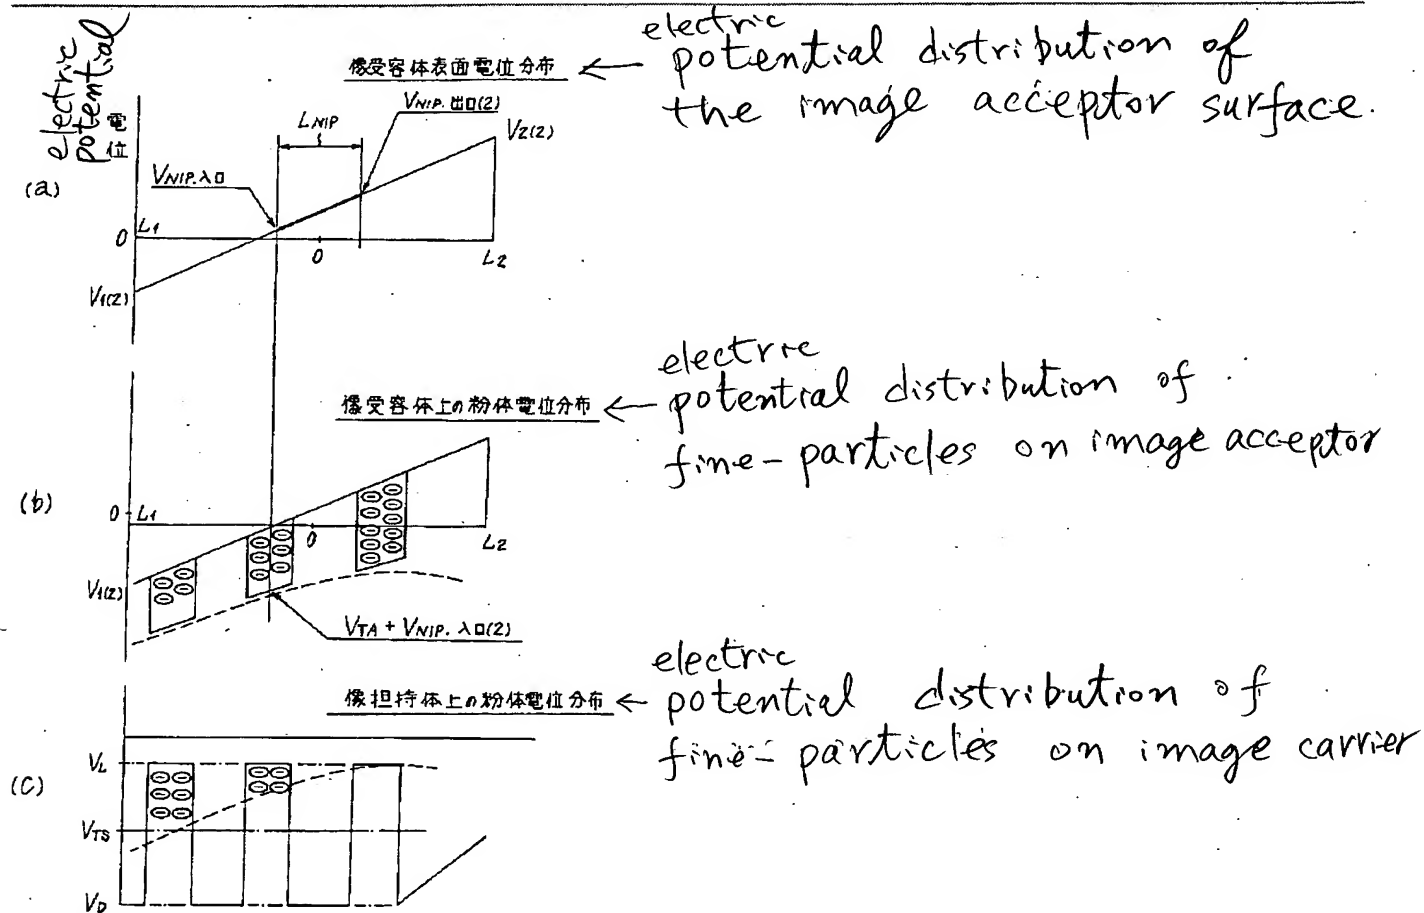 electric
potential
電
位
像受容体表面電位分布 ← electric
potential distribution of
the image acceptor surface.
(a)
LNIP
VNIP.出口(2)
V2(2)
VNIP.入口
0
L1
0
L2
V1(2)
electric
像受容体上の粉体電位分布 ← potential distribution of
fine-particles on image acceptor
(b)
0
L1
0
L2
V1(2)
VTA + VNIP.入口(2)
electric
像担持体上の粉体電位分布 ← potential distribution of
fine-particles on image carrier
(c)
VL
VTS
VD